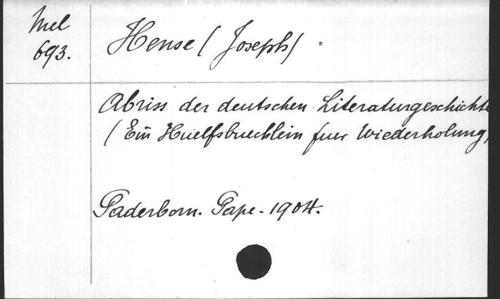 Mel
693.
Hense (Joseph)
Abriss der deutschen Literaturgeschichte
(Ein Huelfsbuechlein fuer Wiederholung)
Paderborn. Pape. 1904.